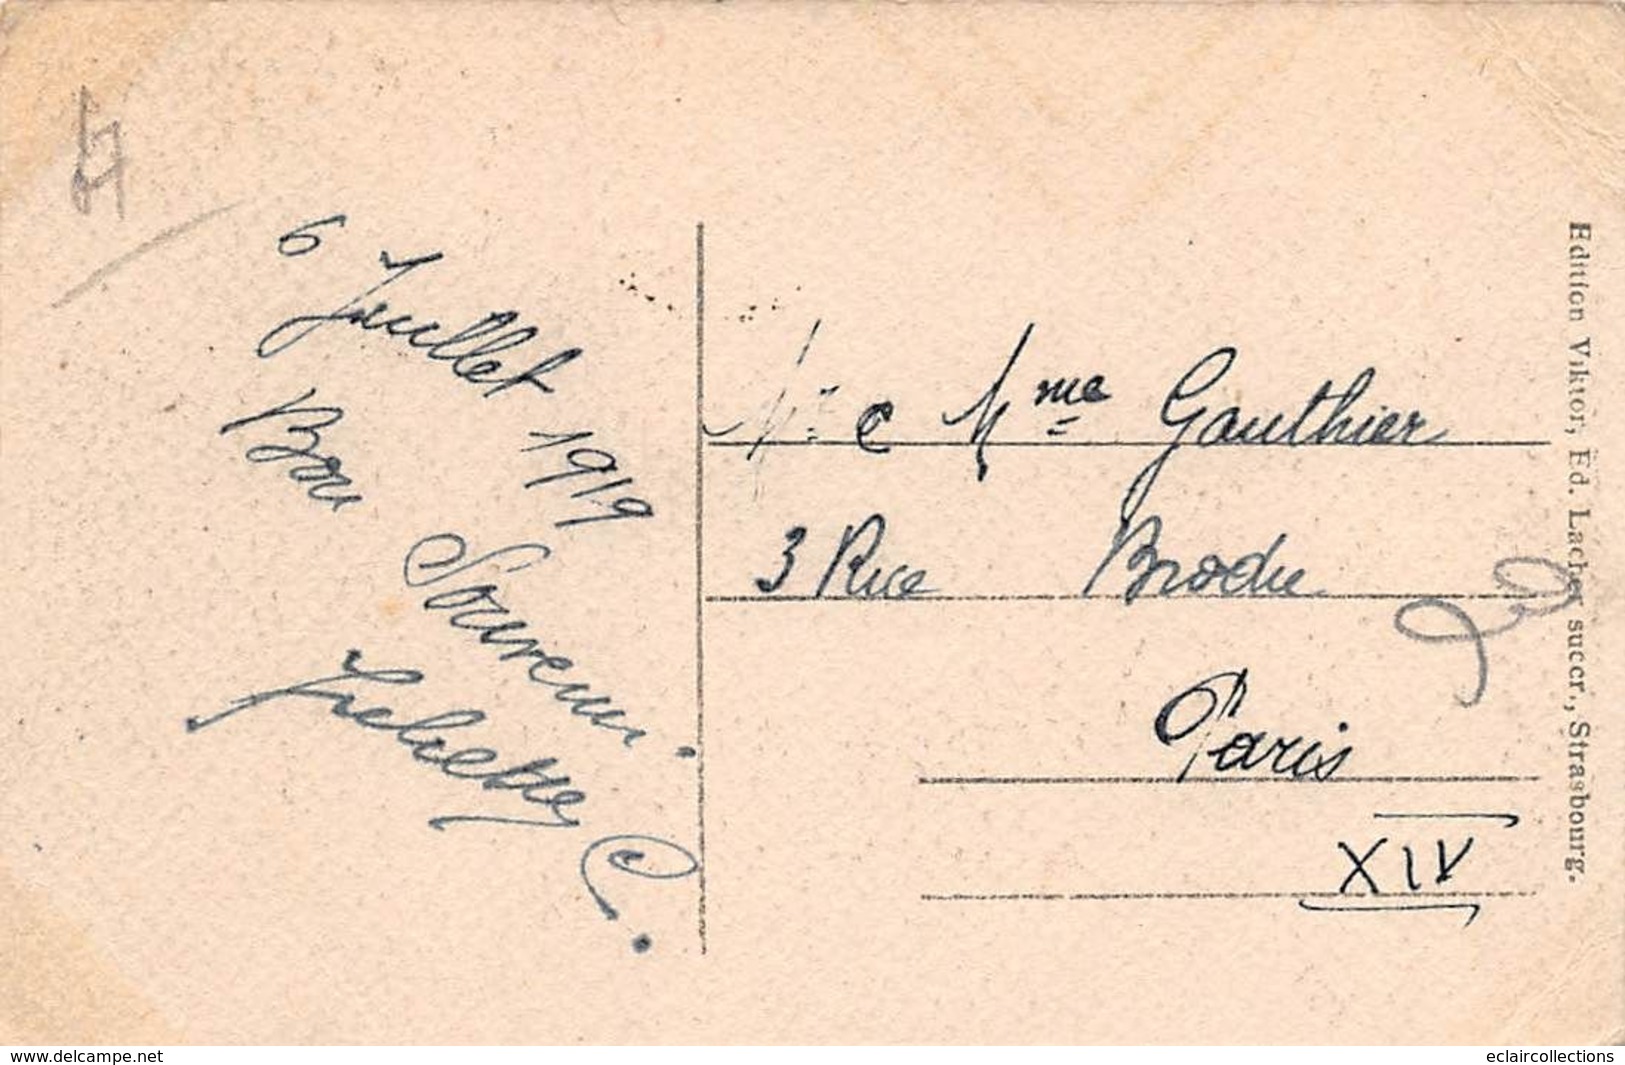 67
6 Juillet 1919
Bon Souvenir.
C.
Mr e Mme Gauthier
3 Rue
Paris
XIV
Edition Viktor, Ed. Lacher succr., Strasbourg.
www.delcampe.net
eclaircollections